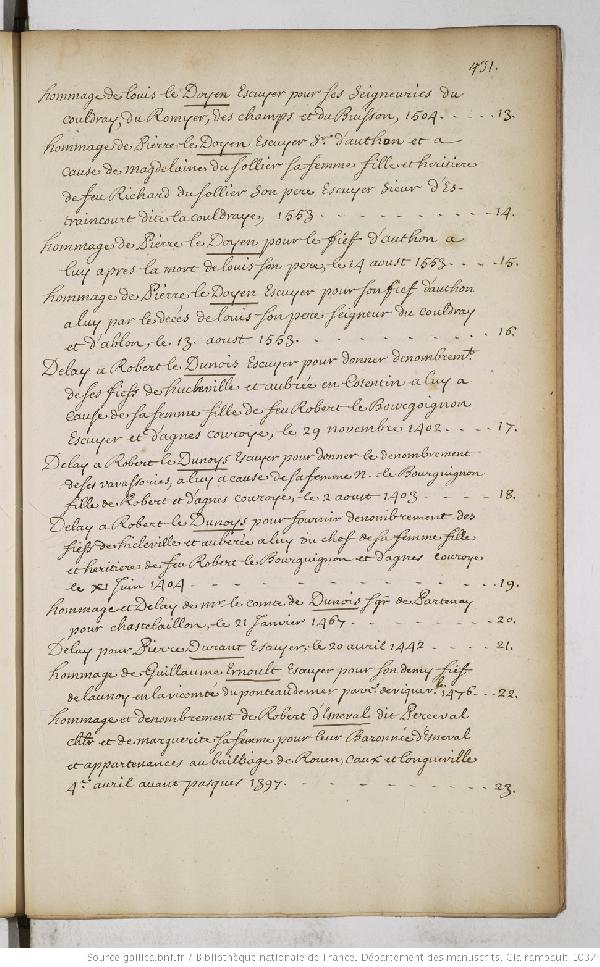 431.
hommage de louis le Doyen Escuyer pour ses seigneuries du
couldray, du Romyer, des champs et du Buisson, 1504. - - - - 13.
hommage de Pierre le Doyen Escuyer Sr. d'authon et a
cause de magdelaine du sollier sa femme fille et heritiere
de feu Richard du sollier son pere Escuyer sieur d'Es-
traincourt dite la couldraye, 1553 - - - - - - - - 14.
hommage de Pierre le Doyen pour le fief d'authon a
luy apres la mort de louis son pere, le 14 aoust 1553 - - - - 15.
hommage de Pierre le Doyen Escuyer pour son fief d'authon
a luy par le deces de louis son pere seigneur du couldray
et d'ablon, le 13. aoust 1553. - - - - - - - - 16.
Delay a Robert le Dunois Escuyer pour donner denombremt.
de ses fiefs de hucleville et aubrée en Costentin a luy a
cause de sa femme fille de feu Robert le Bourgoignon
Escuyer et d'agnes couroye, le 29 novembre 1402 - - - - 17.
Delay a Robert le Dunoys Escuyer pour donner le denombrement
de ses vavassories, a luy a cause de sa femme N. le Bourguignon
fille de Robert et d'agnes couroye, le 2 aoust 1403 - - - - 18.
Delay a Robert le Dunoys pour fournir denombrement des
fiefs de hicleville et aubrée a luy du chef de sa femme fille
et heritiere de feu Robert le Bourguignon et d'agnes couroye
le XI Juin 1404 - - - - - - - - 19.
hommage et Delay de mr. le comte de Dunois sgr. de Partenay
pour chastelaillon, le 21 Janvier 1467 - - - - - - 20.
Delay pour Pierre Durant Escuyer, le 20 avril 1442 - - - - 21.
hommage de Guillaume Ernoult Escuyer pour son demy fief
de launoy en la vicomté du ponteaudemer 1476 - - 22.
hommage et denombrement de Robert d'Esneval dit Perceval
chlr et de marguerite sa femme pour leur Baronnie d'Esneval
et appartenances au bailliage de Rouen, caux et longueville
4e. avril avant pasques 1397. - - - - - - - - 23.
Source gallica.bnf.fr / Bibliothèque nationale de France. Département des manuscrits. Clairambault 1037